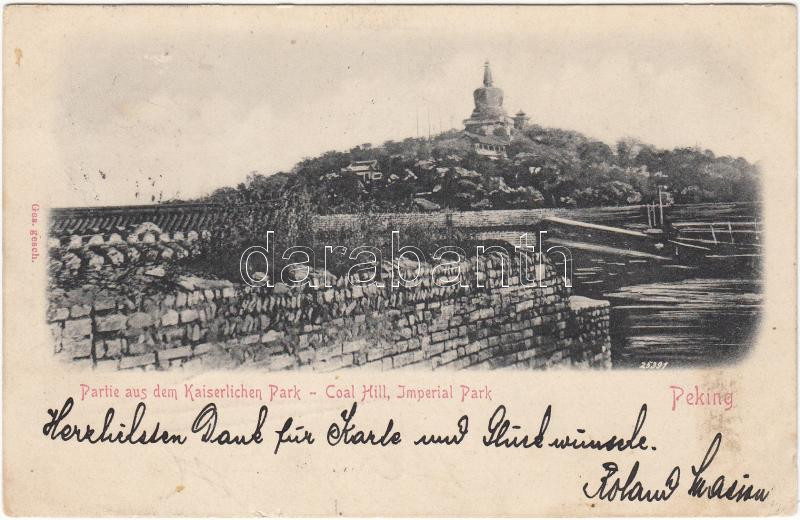 Ges. gesch.
darabanth
25391
Partie aus dem Kaiserlichen Park – Coal Hill, Imperial Park
Peking
Herzlichsten Dank für Karte und Glückwünsche.
Roland